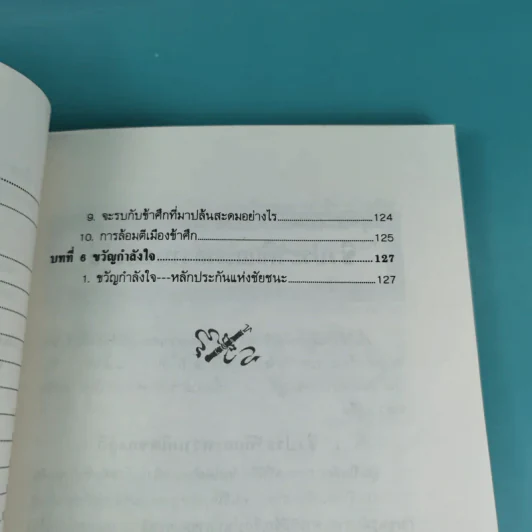 9. จะรบกับข้าศึกที่มาปล้นสะดมอย่างไร........................124
10. การล้อมตีเมืองข้าศึก............................................125
บทที่ 6 ขวัญกำลังใจ......................................................127
1. ขวัญกำลังใจ---หลักประกันแห่งชัยชนะ......................127